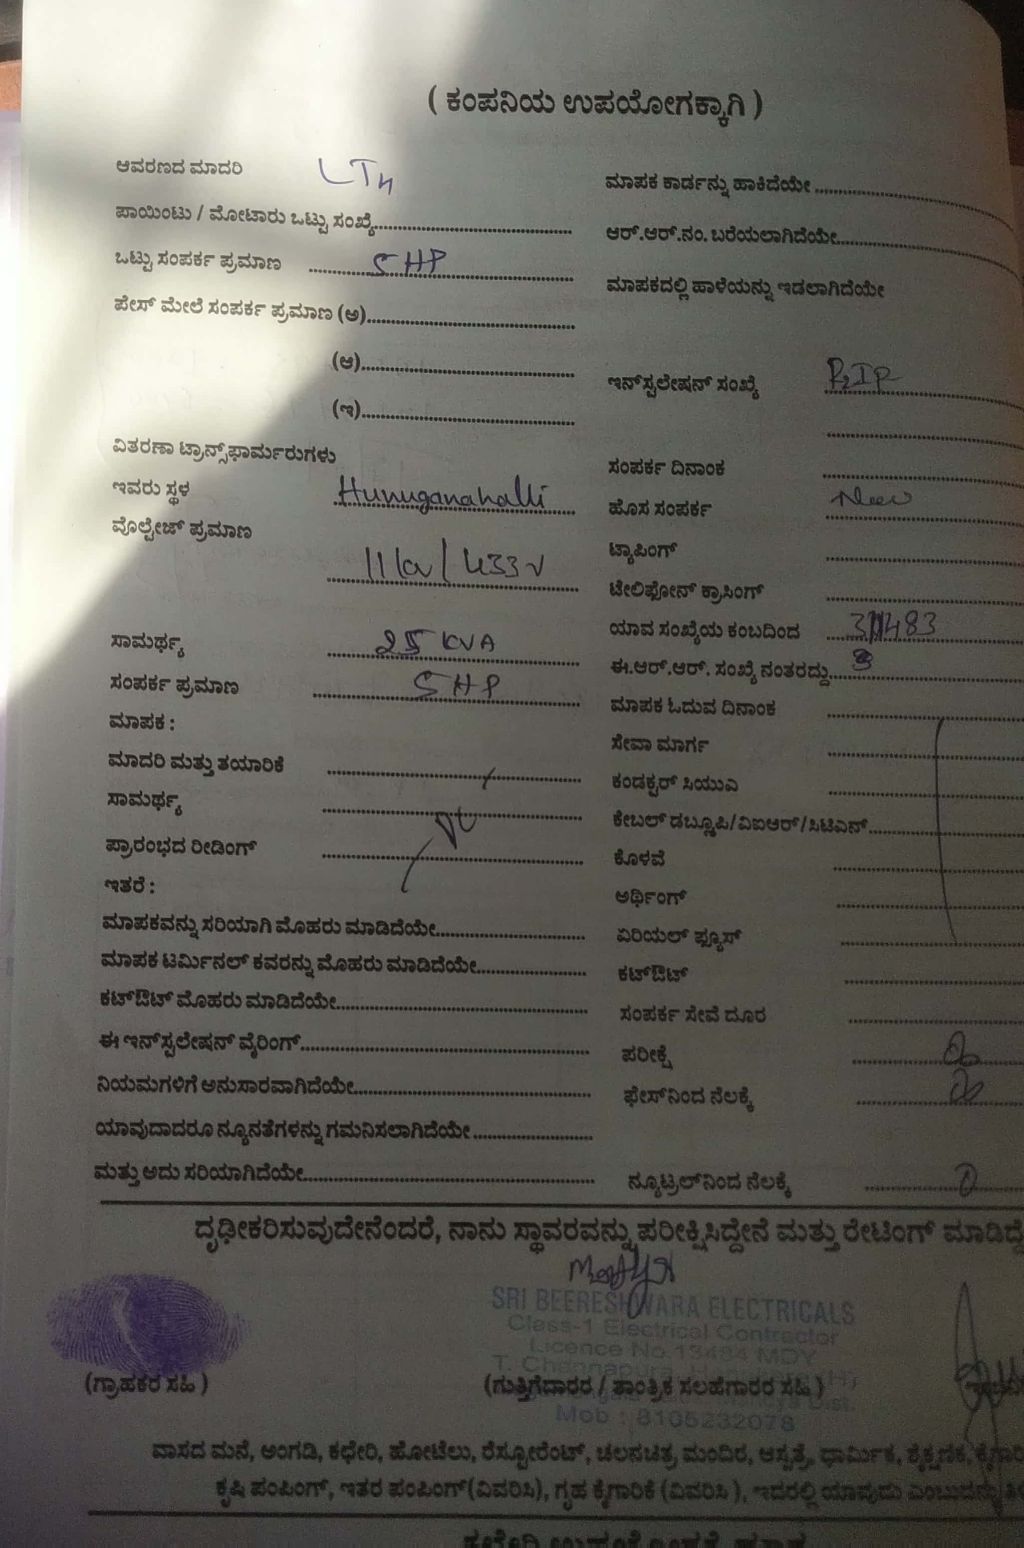 ( ಕಂಪನಿಯ ಉಪಯೋಗಕ್ಕಾಗಿ )
ಆವರಣದ ಮಾದರಿ LT4
ಪಾಯಿಂಟು / ಮೋಟಾರು ಒಟ್ಟು ಸಂಖ್ಯೆ
ಒಟ್ಟು ಸಂಪರ್ಕ ಪ್ರಮಾಣ 5 HP
ಪೇಸ್ ಮೇಲೆ ಸಂಪರ್ಕ ಪ್ರಮಾಣ (ಅ)
(ಆ)
(ಇ)
ವಿತರಣಾ ಟ್ರಾನ್ಸ್‌ಫಾರ್ಮರುಗಳು
ಇವರು ಸ್ಥಳ Hunuganahalli
ವೊಲ್ಟೇಜ್ ಪ್ರಮಾಣ 11kv/433v
ಸಾಮರ್ಥ್ಯ 25 KVA
ಸಂಪರ್ಕ ಪ್ರಮಾಣ 5 HP
ಮಾಪಕ :
ಮಾದರಿ ಮತ್ತು ತಯಾರಿಕೆ
ಸಾಮರ್ಥ್ಯ
ಪ್ರಾರಂಭದ ರೀಡಿಂಗ್
ಇತರೆ :
ಮಾಪಕವನ್ನು ಸರಿಯಾಗಿ ಮೊಹರು ಮಾಡಿದೆಯೇ
ಮಾಪಕ ಟರ್ಮಿನಲ್ ಕವರನ್ನು ಮೊಹರು ಮಾಡಿದೆಯೇ
ಕಟ್‌ಔಟ್ ಮೊಹರು ಮಾಡಿದೆಯೇ
ಈ ಇನ್‌ಸ್ಟಲೇಷನ್ ವೈರಿಂಗ್
ನಿಯಮಗಳಿಗೆ ಅನುಸಾರವಾಗಿದೆಯೇ
ಯಾವುದಾದರೂ ನ್ಯೂನತೆಗಳನ್ನು ಗಮನಿಸಲಾಗಿದೆಯೇ
ಮತ್ತು ಅದು ಸರಿಯಾಗಿದೆಯೇ
ಮಾಪಕ ಕಾರ್ಡನ್ನು ಹಾಕಿದೆಯೇ
ಆರ್.ಆರ್.ನಂ. ಬರೆಯಲಾಗಿದೆಯೇ
ಮಾಪಕದಲ್ಲಿ ಹಾಳೆಯನ್ನು ಇಡಲಾಗಿದೆಯೇ
ಇನ್‌ಸ್ಟಲೇಷನ್ ಸಂಖ್ಯೆ
ಸಂಪರ್ಕ ದಿನಾಂಕ
ಹೊಸ ಸಂಪರ್ಕ New
ಟ್ಯಾಪಿಂಗ್
ಟೇಲಿಫೋನ್ ಕ್ರಾಸಿಂಗ್
ಯಾವ ಸಂಖ್ಯೆಯ ಕಂಬದಿಂದ
ಈ.ಆರ್.ಆರ್. ಸಂಖ್ಯೆ ನಂತರದ್ದು
ಮಾಪಕ ಓದುವ ದಿನಾಂಕ
ಸೇವಾ ಮಾರ್ಗ
ಕಂಡಕ್ಟರ್ ಸಿಯುಎ
ಕೇಬಲ್ ಡಬ್ಲ್ಯೂಪಿ/ವಿಐಆರ್/ಸಿಟಿಎಸ್
ಕೊಳವೆ
ಅರ್ಥಿಂಗ್
ಏರಿಯಲ್ ಫ್ಯೂಸ್
ಕಟ್‌ಔಟ್
ಸಂಪರ್ಕ ಸೇವೆ ದೂರ
ಪರೀಕ್ಷೆ
ಫೇಸ್‌ನಿಂದ ನೆಲಕ್ಕೆ
ನ್ಯೂಟ್ರಲ್‌ನಿಂದ ನೆಲಕ್ಕೆ
ದೃಢೀಕರಿಸುವುದೇನೆಂದರೆ, ನಾನು ಸ್ಥಾವರವನ್ನು ಪರೀಕ್ಷಿಸಿದ್ದೇನೆ ಮತ್ತು ರೇಟಿಂಗ್
SRI BEERESHWARA ELECTRICALS
Class-1 Electrical Contractor
Licence No.13484 MDY
T. Channapura,
(ಗ್ರಾಹಕರ ಸಹಿ) (ಗುತ್ತಿಗೆದಾರರ / ತಾಂತ್ರಿಕ ಸಲಹೆಗಾರರ ಸಹಿ)
Mob : 8105232078
ವಾಸದ ಮನೆ, ಅಂಗಡಿ, ಕಛೇರಿ, ಹೋಟೆಲು, ರೆಸ್ಟೋರೆಂಟ್, ಚಲನಚಿತ್ರ ಮಂದಿರ, ಆಸ್ಪತ್ರೆ, ಧಾರ್ಮಿಕ, ಶೈಕ್ಷಣಿಕ,
ಕೃಷಿ ಪಂಪಿಂಗ್, ಇತರ ಪಂಪಿಂಗ್(ವಿವರಿಸಿ), ಗೃಹ ಕೈಗಾರಿಕೆ (ವಿವರಿಸಿ), ಇದರಲ್ಲಿ ಯಾವುದು